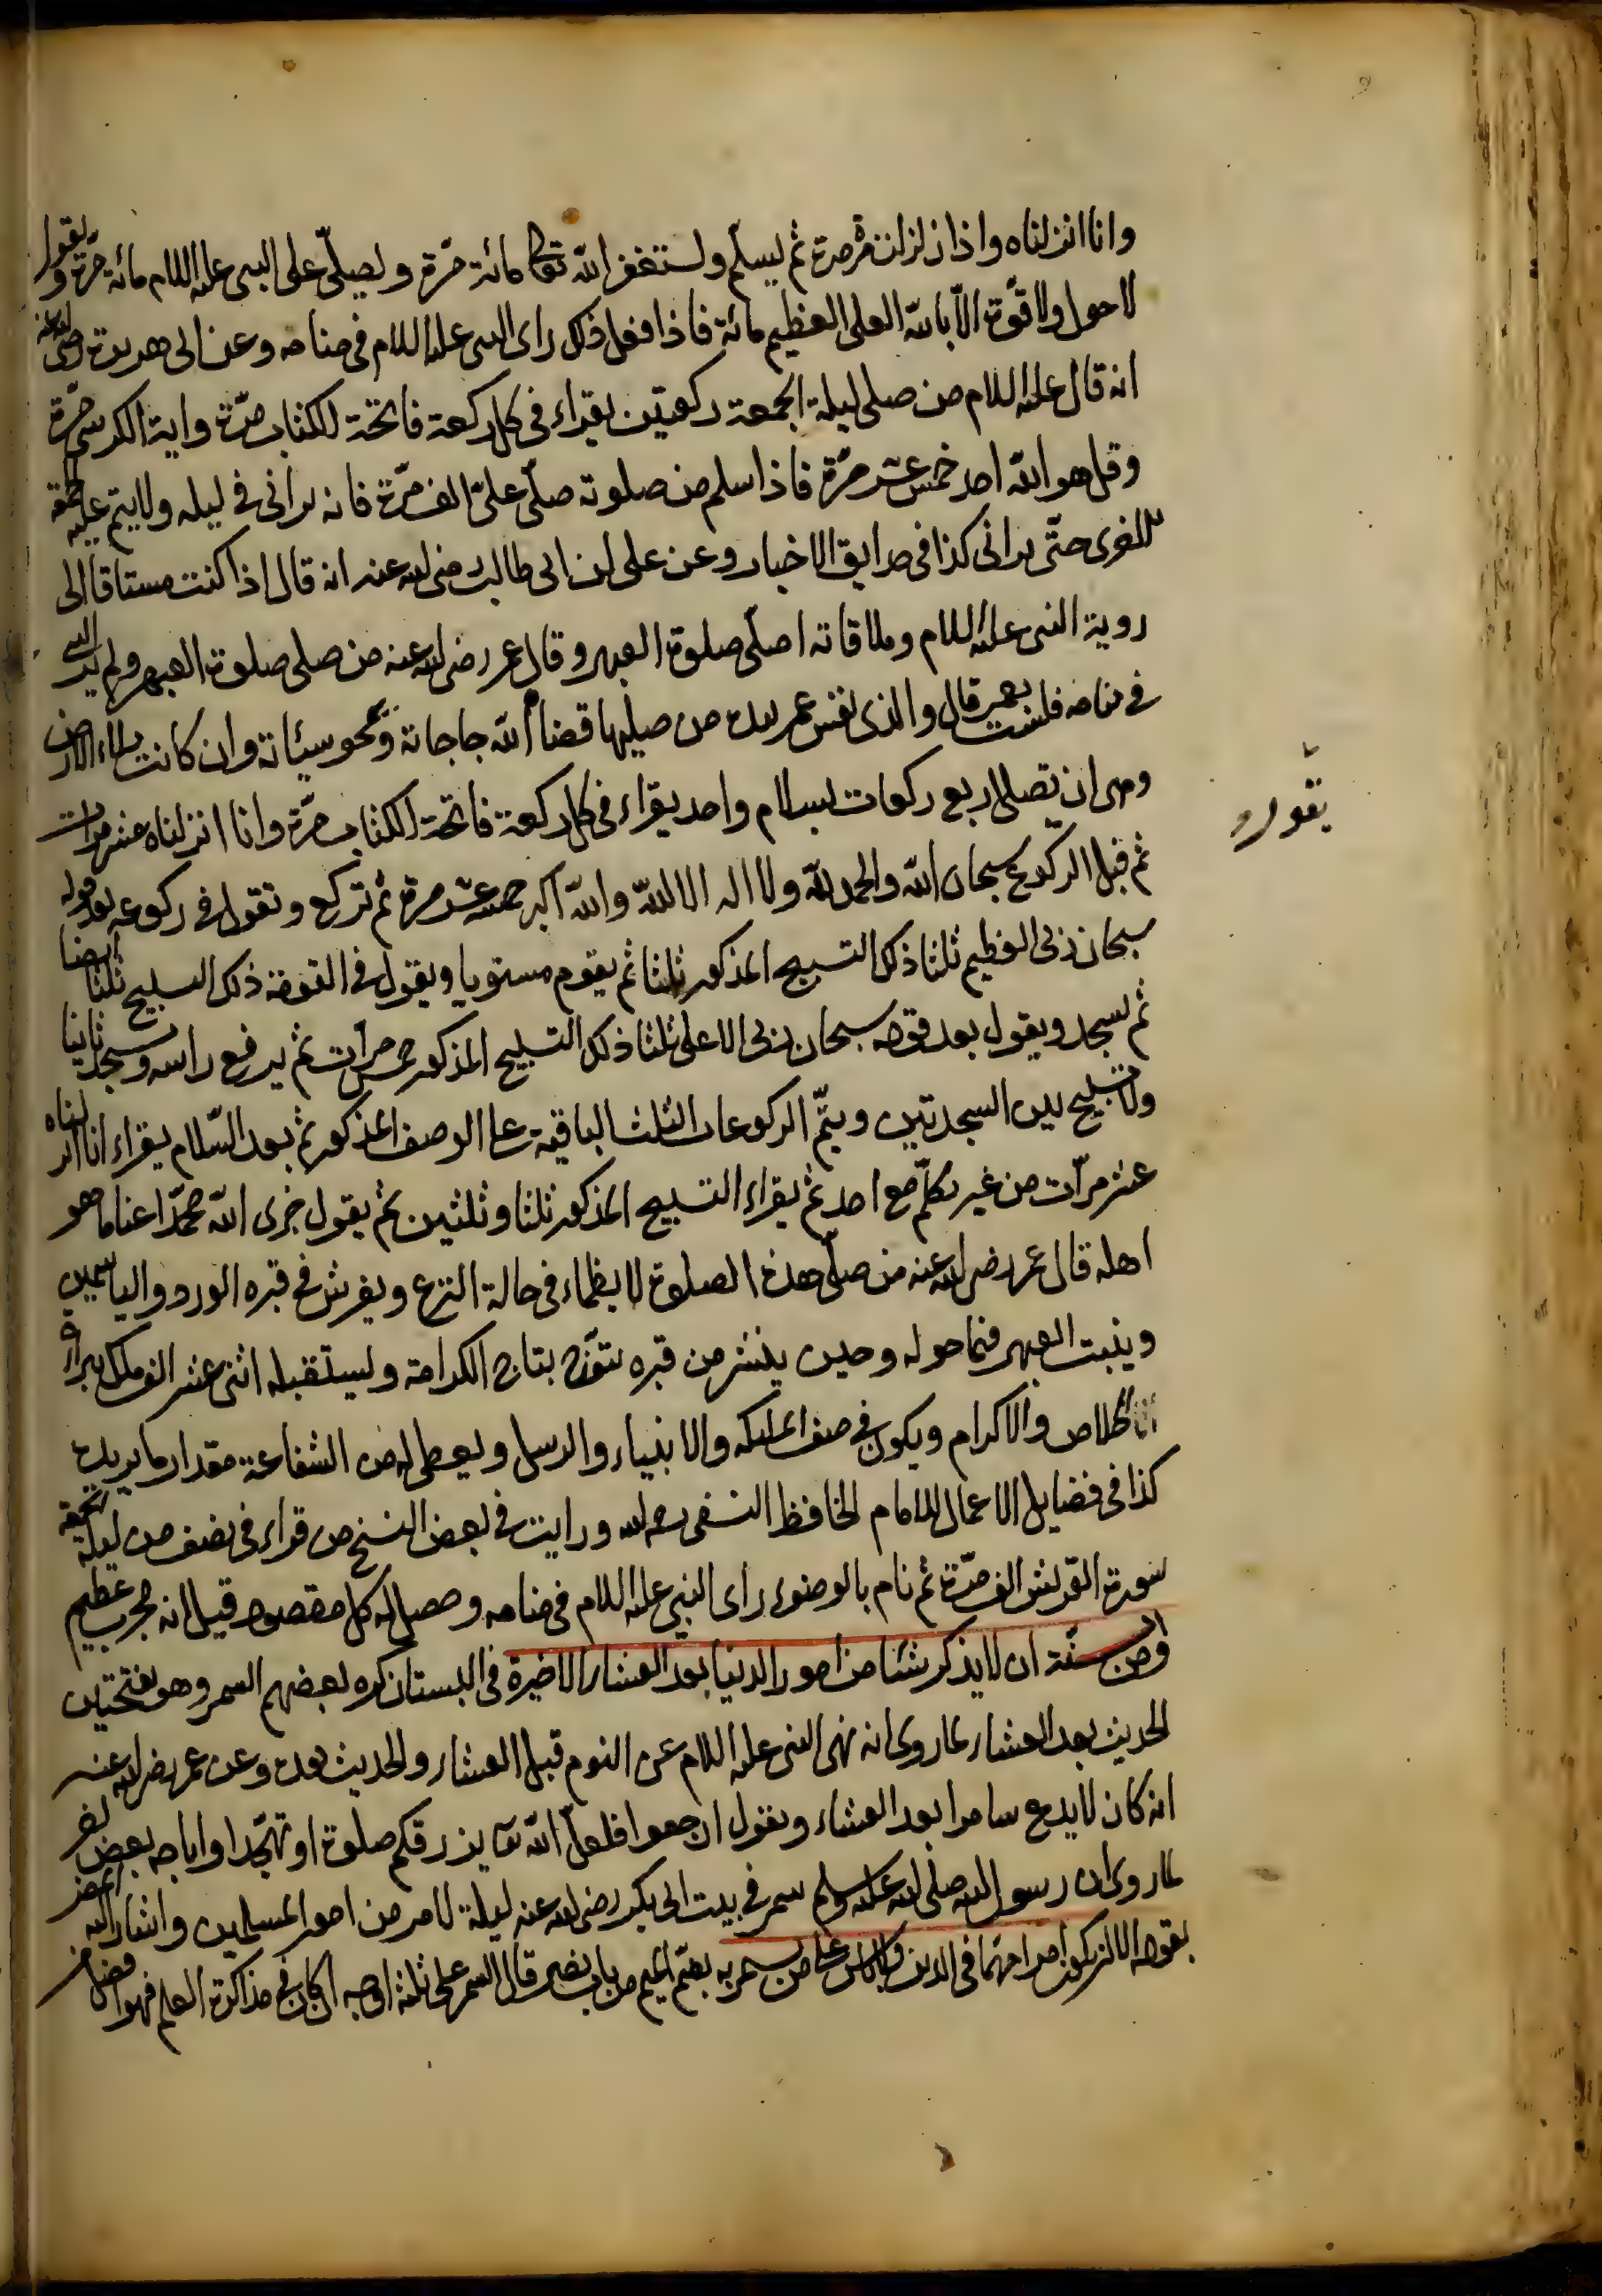 وانا انزلناه واذا زلزلت مرة مرة ثم يسلم ويستغفر الله تعالى مائة مرّة ويصلّي على النبي عليه السلام مائة مرّة ويقول
لا حول ولا قوّة الّا بالله العلى العظيم مائة فاذا فعل ذلك راى النبى عليه السلام فى منامه وعن ابى هريرة رضى الله عنه
انه قال عليه السلام من صلى ليلة الجمعة ركعتين يقراء فى كل ركعة فاتحة الكتاب مرّة واية الكرسى مرّة
وقل هو الله احد خمس عشر مرّة فاذا سلم من صلوته صلّى علىّ الف مرّة فانه يرانى فى ليله ولا يتم عليه الجمعة
الاخرى حتّى يرانى كذا فى حدايق الاخبار وعن على ابن ابى طالب رضى الله عنه انه قال اذا كنت مشتاقا الى
روية النبى عليه السلام وملاقاته اصلّى صلوة العبهر وقال عمر رضى الله عنه من صلى صلوة العبهر ولم ير النبى
فى منامه فلست بعمر قال والذى نفس عمر بيده من صليها قضا الله حاجاته ويمحو سيئاته وان كانت ملاء الارض
وهى ان تصلى اربع ركعات بسلام واحد يقراء فى كل ركعة فاتحة الكتاب مرّة وانا انزلناه عشر مرات
ثم قبل الركوع سبحان الله والحمد لله ولا اله الا الله والله اكبر خمسة عشر مرة ثم تركع وتقول فى ركوعه بعد قوله
يقول
سبحان ربى العظيم ثلثا ذلك التسبيح المذكور ثلثا ثم يقوم مستويا ويقول فى القومة ذلك التسبيح ثلثا ايضا
ثم يسجد ويقول بعد قوله سبحان ربى الاعلى ثلثا ذلك التسبيح المذكور خمس مرات ثم يرفع راسه ويسجد ثانيا
ولا تسبيح بين السجدتين ويتمّ الركوعات الثلث الباقية على الوصف المذكور ثم بعد السّلام يقراء انا انزلناه
عشر مرّات من غير تكلّم مع احد ثم يقراء التسبيح المذكور ثلثا وثلثين ثم يقول جزى الله محمّدا عنا ما هو
اهله قال عمر رضى الله عنه من صلّى هذه الصلوة لا يظماء فى حالة النزع ويفرش فى قبره الورد والياسمين
وينبت العبهر فيما حوله وحين ينشر من قبره يتوّج بتاج الكرامة ويستقبله اثنى عشر الف ملك
والاكرام ويكون فى صف الملئكه والانبياء والرسل ويعطى له من الشفاعة مقدار ما يريده
كذا فى فضايل الاعمال للامام الحافظ النسفى رحمه الله ورايت فى بعض النسخ من قراء فى نصف من ليلة الجمعة
سورة القريش الف مرّة ثم نام بالوضوء راى النبى عليه السلام فى منامه وحصل له كل مقصوده قيل انه مجرب عظيم
ومن السنّة ان لا يذكر شئا من امور الدنيا بعد العشاء الاخيرة فى البستان كره بعضهم السمر وهو بفتحتين
الحديث بعد العشاء لما روى انه نهى النبى عليه السلام عن النوم قبل العشاء والحديث بعده وعن عمر رضى الله عنه
انه كان لا يدع سامرا بعد العشاء ويقول ارجعوا فلعلّ الله تعا يرزقكم صلوة او تهجّدا واباحه بعض
لما روى ان رسول الله صلى الله عليه وسلم سمر فى بيت ابى بكر رضى الله عنه ليلة لامر من امور المسلمين واشار اليه المصنف
بقوله الا ان يكون امرا مهمّا فى الدين من يسمر به بضمّ الميم من باب نصر قال السمر على ثلثة اوجه ان كان فى مذاكرة العلم فهو افضل من